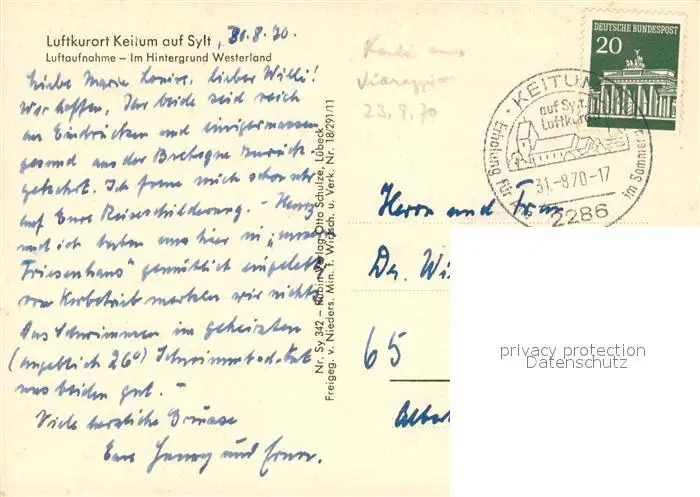 Luftkurort Keitum auf Sylt, 31.8.70.
Luftaufnahme – Im Hintergrund Westerland
Liebe Marie Louise, lieber Willi!
Wir hoffen, Ihr beide seid reich
an Eindrücken und einigermassen
gesund aus der Bretagne zurück-
gekehrt. Ich freue mich schon sehr
auf Eure Reiseschilderung. – Henny
und ich haben uns hier in „unserem
Friesenhaus" gemütlich eingelebt
vom Kurbetrieb merken wir nichts
Das Schwimmen im geheizten
(angeblich 26°) Schwimmbad tut
uns beiden gut. –
Viele herzliche Grüsse
Eure Henny und
Nr. Sy 342 – Rubin-Verlag Otto Schulze, Lübeck
Freigeg. v. Nieders. Min. f. Wirtsch. u. Verk. Nr. 18/291/11
Karte aus
Viareggio
23.9.70
DEUTSCHE BUNDESPOST
20
KEITUM
auf Sylt
Luftkurort
Erholung für
im Sommer
31.-8.70-17
2286
Herrn und Frau
Dr. Wi
65
Albert
privacy protection
Datenschutz